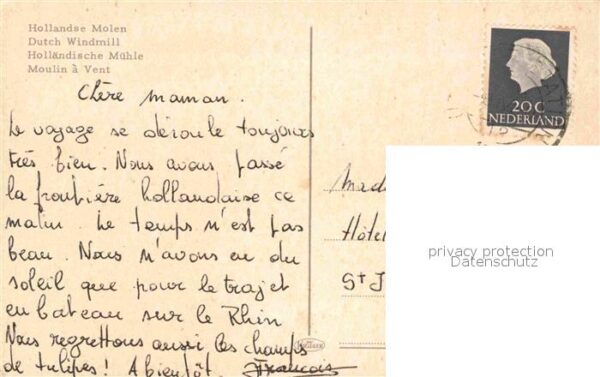 Hollandse Molen
Dutch Windmill
Holländische Mühle
Moulin à Vent
Chère maman.
Le voyage se déroule toujours
très bien. Nous avons passé
la frontière hollandaise ce
matin. Le temps n'est pas
beau. Nous n'avons eu du
soleil que pour le trajet
en bateau sur le Rhin
Nous regrettons aussi les champs
de tulipes! A bientôt. Francois
20 C
NEDERLAND
Mad
Hôtel
St J
privacy protection
Datenschutz